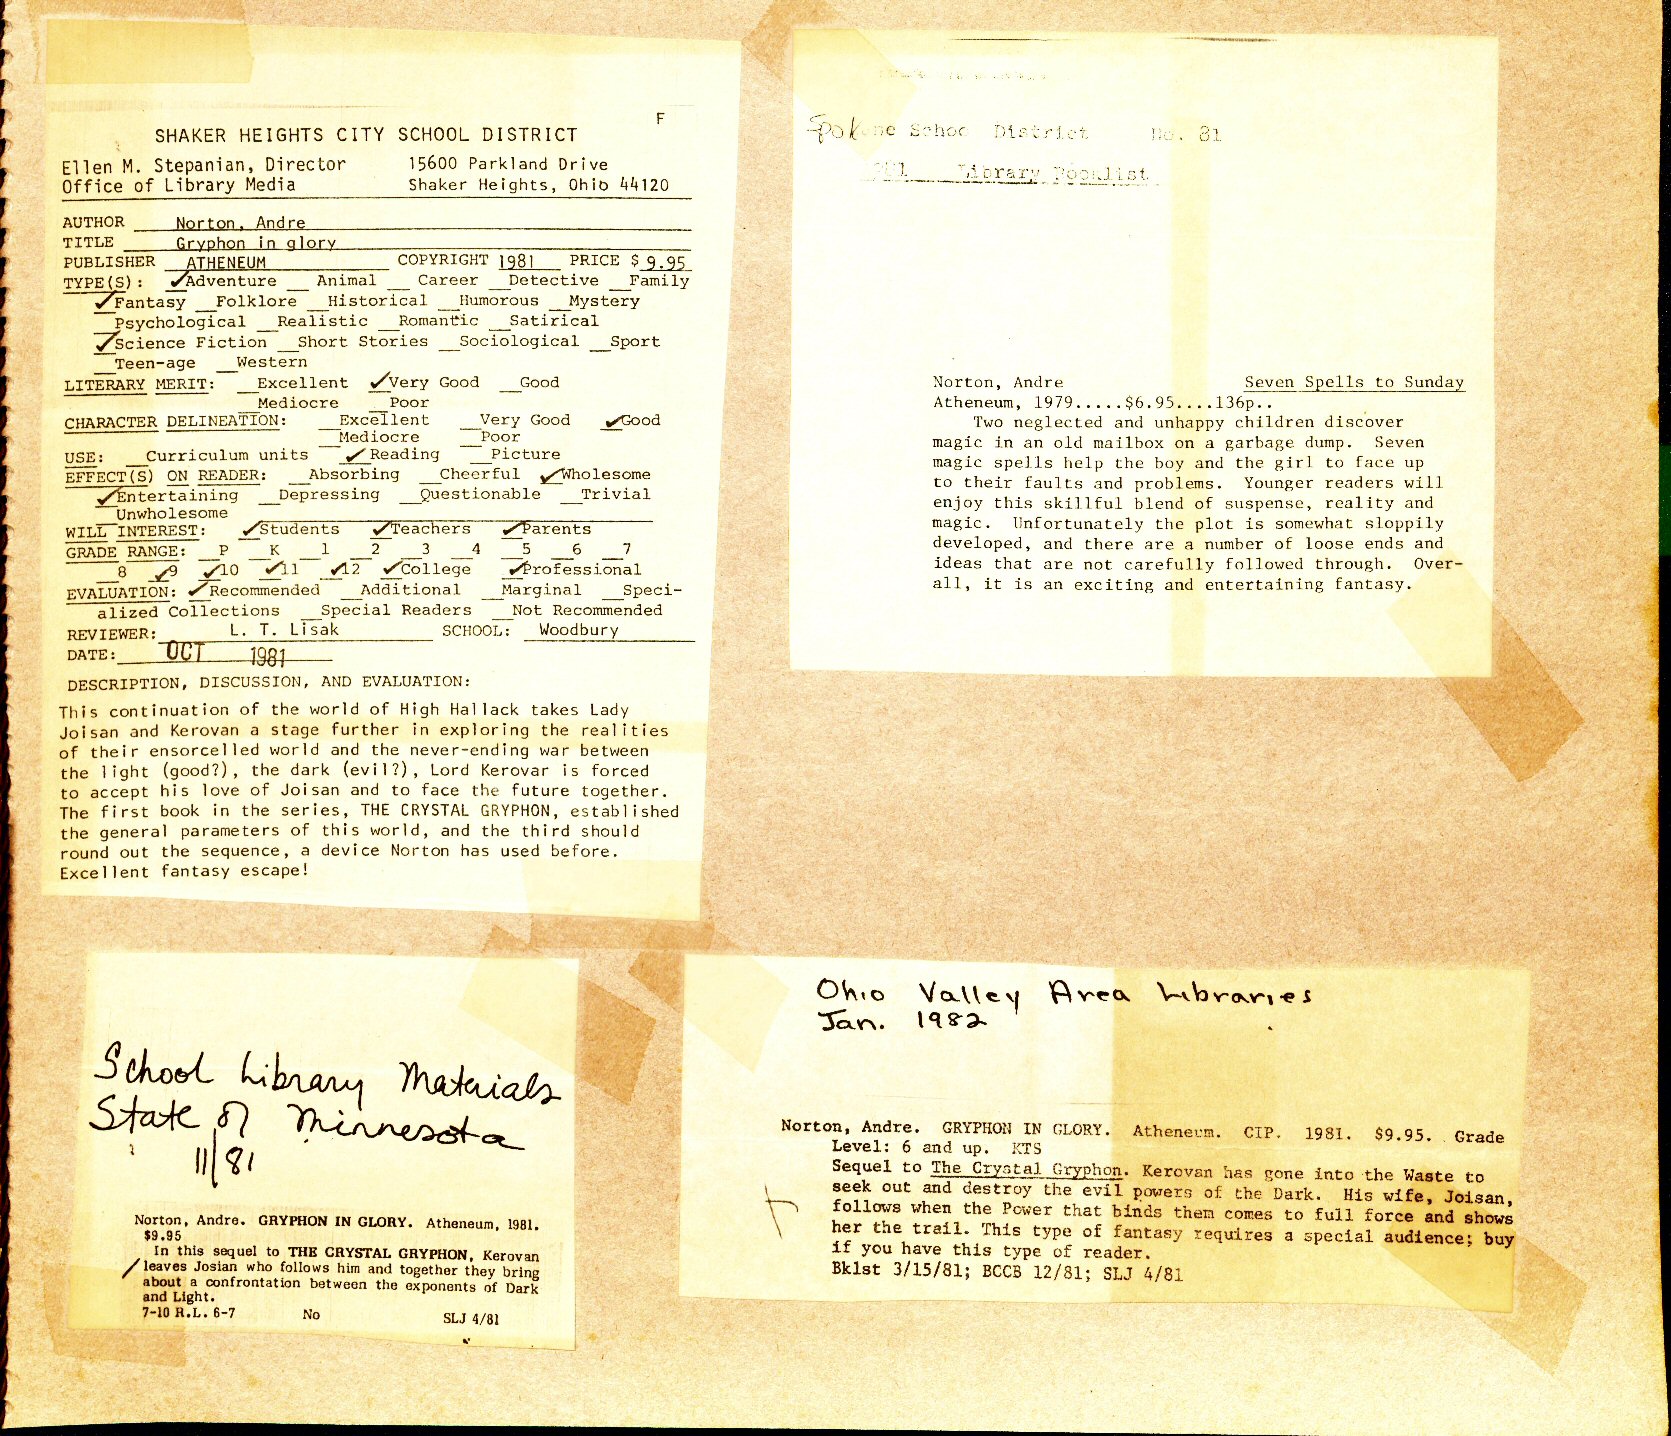 F
SHAKER HEIGHTS CITY SCHOOL DISTRICT
Ellen M. Stepanian, Director 15600 Parkland Drive
Office of Library Media Shaker Heights, Ohio 44120
AUTHOR Norton, Andre
TITLE Gryphon in glory
PUBLISHER ATHENEUM COPYRIGHT 1981 PRICE $ 9.95
TYPE(S): ✓Adventure __Animal __Career __Detective __Family
✓Fantasy __Folklore __Historical __Humorous __Mystery
__Psychological __Realistic __Romantic __Satirical
✓Science Fiction __Short Stories __Sociological __Sport
__Teen-age __Western
LITERARY MERIT: __Excellent ✓Very Good __Good
__Mediocre __Poor
CHARACTER DELINEATION: __Excellent __Very Good ✓Good
__Mediocre __Poor
USE: __Curriculum units ✓Reading __Picture
EFFECT(S) ON READER: __Absorbing __Cheerful ✓Wholesome
✓Entertaining __Depressing __Questionable __Trivial
__Unwholesome
WILL INTEREST: ✓Students ✓Teachers ✓Parents
GRADE RANGE: __P __K __1 __2 __3 __4 __5 __6 __7
__8 ✓9 ✓10 ✓11 ✓12 ✓College ✓Professional
EVALUATION: ✓Recommended __Additional __Marginal __Speci-
alized Collections __Special Readers __Not Recommended
REVIEWER: L. T. Lisak SCHOOL: Woodbury
DATE: OCT 1981
DESCRIPTION, DISCUSSION, AND EVALUATION:
This continuation of the world of High Hallack takes Lady
Joisan and Kerovan a stage further in exploring the realities
of their ensorcelled world and the never-ending war between
the light (good?), the dark (evil?), Lord Kerovar is forced
to accept his love of Joisan and to face the future together.
The first book in the series, THE CRYSTAL GRYPHON, established
the general parameters of this world, and the third should
round out the sequence, a device Norton has used before.
Excellent fantasy escape!
Spokane School District No. 81
Library Booklist
Norton, Andre Seven Spells to Sunday
Atheneum, 1979.....$6.95....136p..
Two neglected and unhappy children discover
magic in an old mailbox on a garbage dump. Seven
magic spells help the boy and the girl to face up
to their faults and problems. Younger readers will
enjoy this skillful blend of suspense, reality and
magic. Unfortunately the plot is somewhat sloppily
developed, and there are a number of loose ends and
ideas that are not carefully followed through. Over-
all, it is an exciting and entertaining fantasy.
School Library Materials
State of Minnesota
11/81
Norton, Andre. GRYPHON IN GLORY. Atheneum, 1981.
$9.95
In this sequel to THE CRYSTAL GRYPHON, Kerovan
leaves Josian who follows him and together they bring
about a confrontation between the exponents of Dark
and Light.
7-10 R.L. 6-7 No SLJ 4/81
Ohio Valley Area Libraries
Jan. 1982
Norton, Andre. GRYPHON IN GLORY. Atheneum. CIP. 1981. $9.95. Grade
Level: 6 and up. KTS
Sequel to The Crystal Gryphon. Kerovan has gone into the Waste to
seek out and destroy the evil powers of the Dark. His wife, Joisan,
follows when the Power that binds them comes to full force and shows
her the trail. This type of fantasy requires a special audience; buy
if you have this type of reader.
Bklst 3/15/81; BCCB 12/81; SLJ 4/81